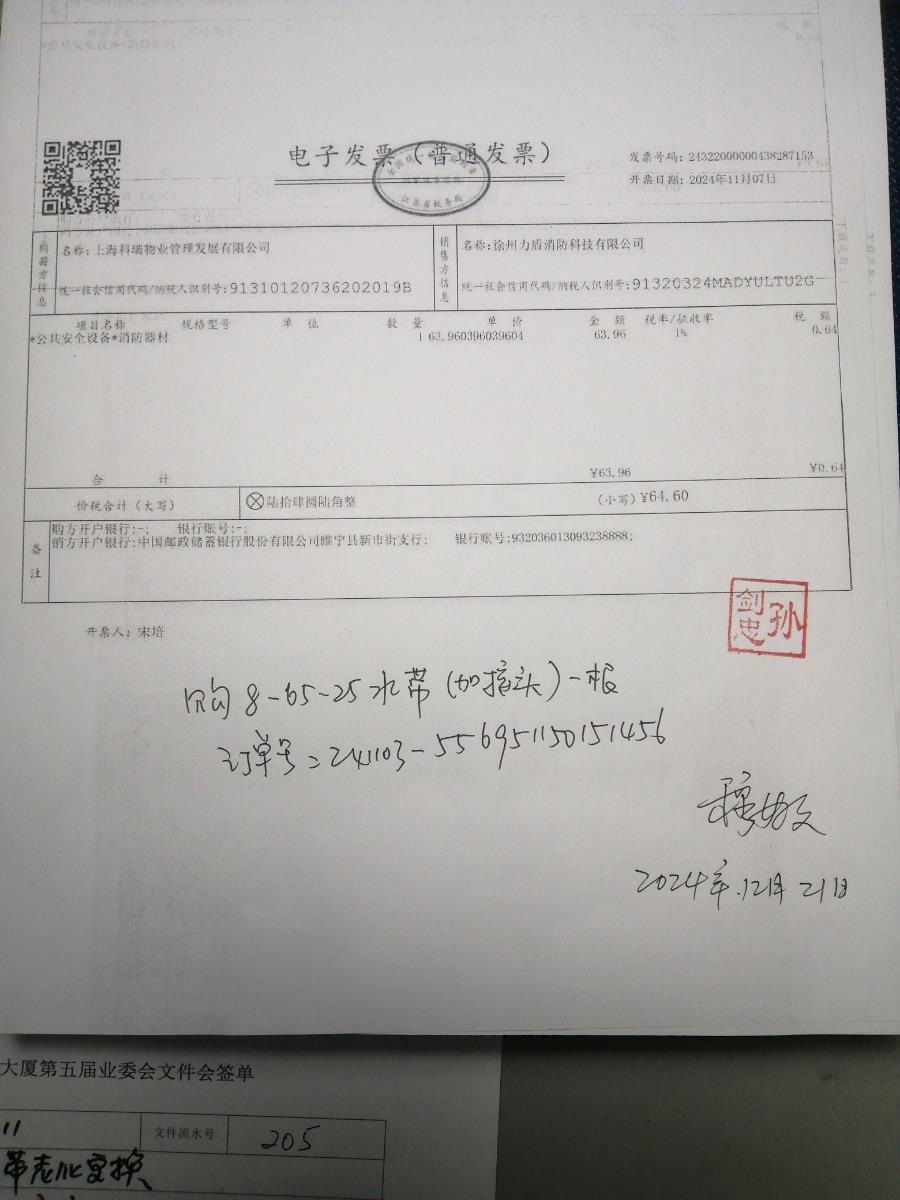 电子发票（普通发票）
江苏省税务局
发票号码: 24322000000438287153
开票日期: 2024年11月07日
购买方信息
名称: 上海科瑞物业管理发展有限公司
统一社会信用代码/纳税人识别号: 91310120736202019B
销售方信息
名称: 徐州力盾消防科技有限公司
统一社会信用代码/纳税人识别号: 91320324MADYULTU2G
项目名称 规格型号 单位 数量 单价 金额 税率/征收率 税额
*公共安全设备*消防器材 1 63.960396039604 63.96 1% 0.64
合计 ¥63.96 ¥0.64
价税合计（大写） 陆拾肆圆陆角整 （小写）¥64.60
备注
购方开户银行:-; 银行账号:-;
销方开户银行:中国邮政储蓄银行股份有限公司睢宁县新市街支行; 银行账号:932036013093238888;
孙剑忠
开票人: 宋培
购8-65-25水带(加接头)一根
订单号=241103-556951150151456
2024年.12月21日
大厦第五届业委会文件会签单
11 文件流水号 205
带老化更换